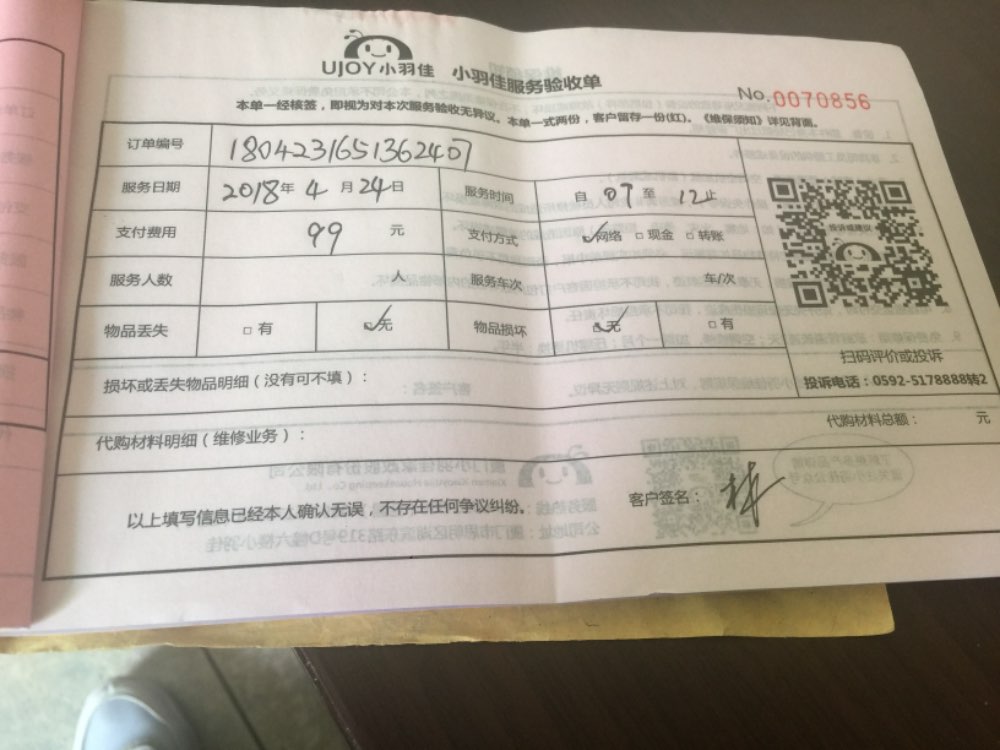 UJOY小羽佳 小羽佳服务验收单
No.0070856
本单一经核签，即视为对本次服务验收无异议。本单一式两份，客户留存一份(红)。《维保须知》详见背面。
订单编号
服务日期 2018年 4月 24日 服务时间 自 07 至 12止
支付费用 99 元 支付方式 网络 现金 转账
服务人数 人 服务车次 车/次
物品丢失 有 无 物品损坏 无 有
投诉或建议
扫码评价或投诉
投诉电话：0592-5178888转2
损坏或丢失物品明细（没有可不填）：
代购材料明细（维修业务）： 代购材料总额： 元
以上填写信息已经本人确认无误，不存在任何争议纠纷。 客户签名：